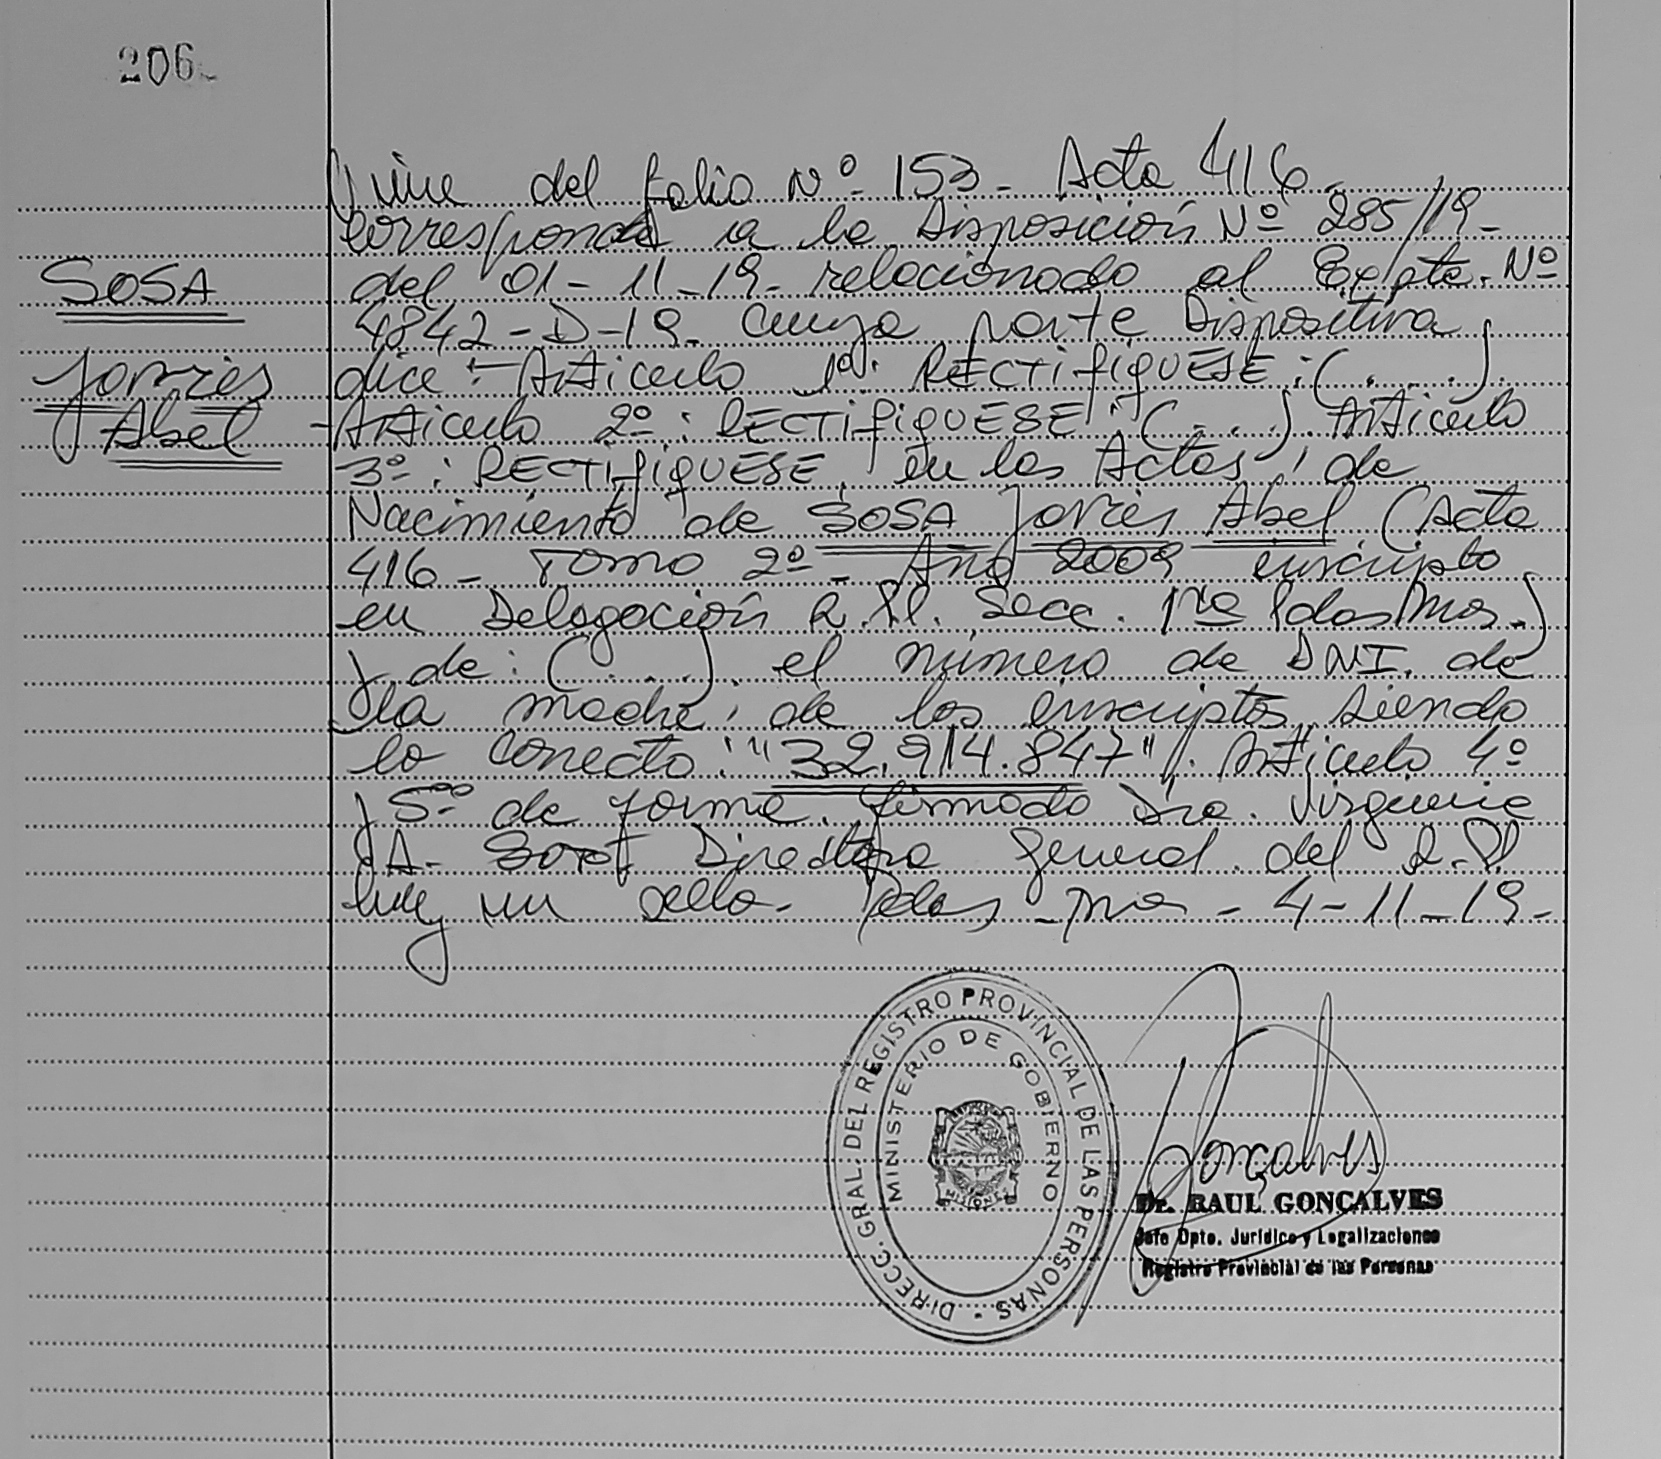 206
Viene del folio Nº 153 - Acta 416 -
Corresponde a la Disposición Nº 285/19 -
SOSA
del 01-11-19- relacionado al Expte. Nº
4842-D-19- cuya parte Dispositiva
dice: Artículo 1º: RECTIFIQUESE: (....).
Abel
Artículo 2º: RECTIFIQUESE: (....). Artículo
3º: RECTIFIQUESE, en las Actas, de
Nacimiento de SOSA Abel (Acta
416 - Tomo 2º - Año 2009 inscripto
en Delegación R.P. Secc. 1ra Pdas Mnes.)
y de: (....), el número de DNI. de
la madre, de los inscriptos, siendo
lo correcto: "32.914.847". Artículo 4º
y 5º de forma. firmado Dra.
A. Directora General del R.P.
hay un sello. Pdas - Mnes - 4-11-19-
DIRECC. GRAL. DEL REGISTRO PROVINCIAL DE LAS PERSONAS
MINISTERIO DE GOBIERNO
MISIONES
Gonçalves
Dr. RAUL GONÇALVES
Jefe Dpto. Jurídico y Legalizaciones
Registro Provincial de las Personas